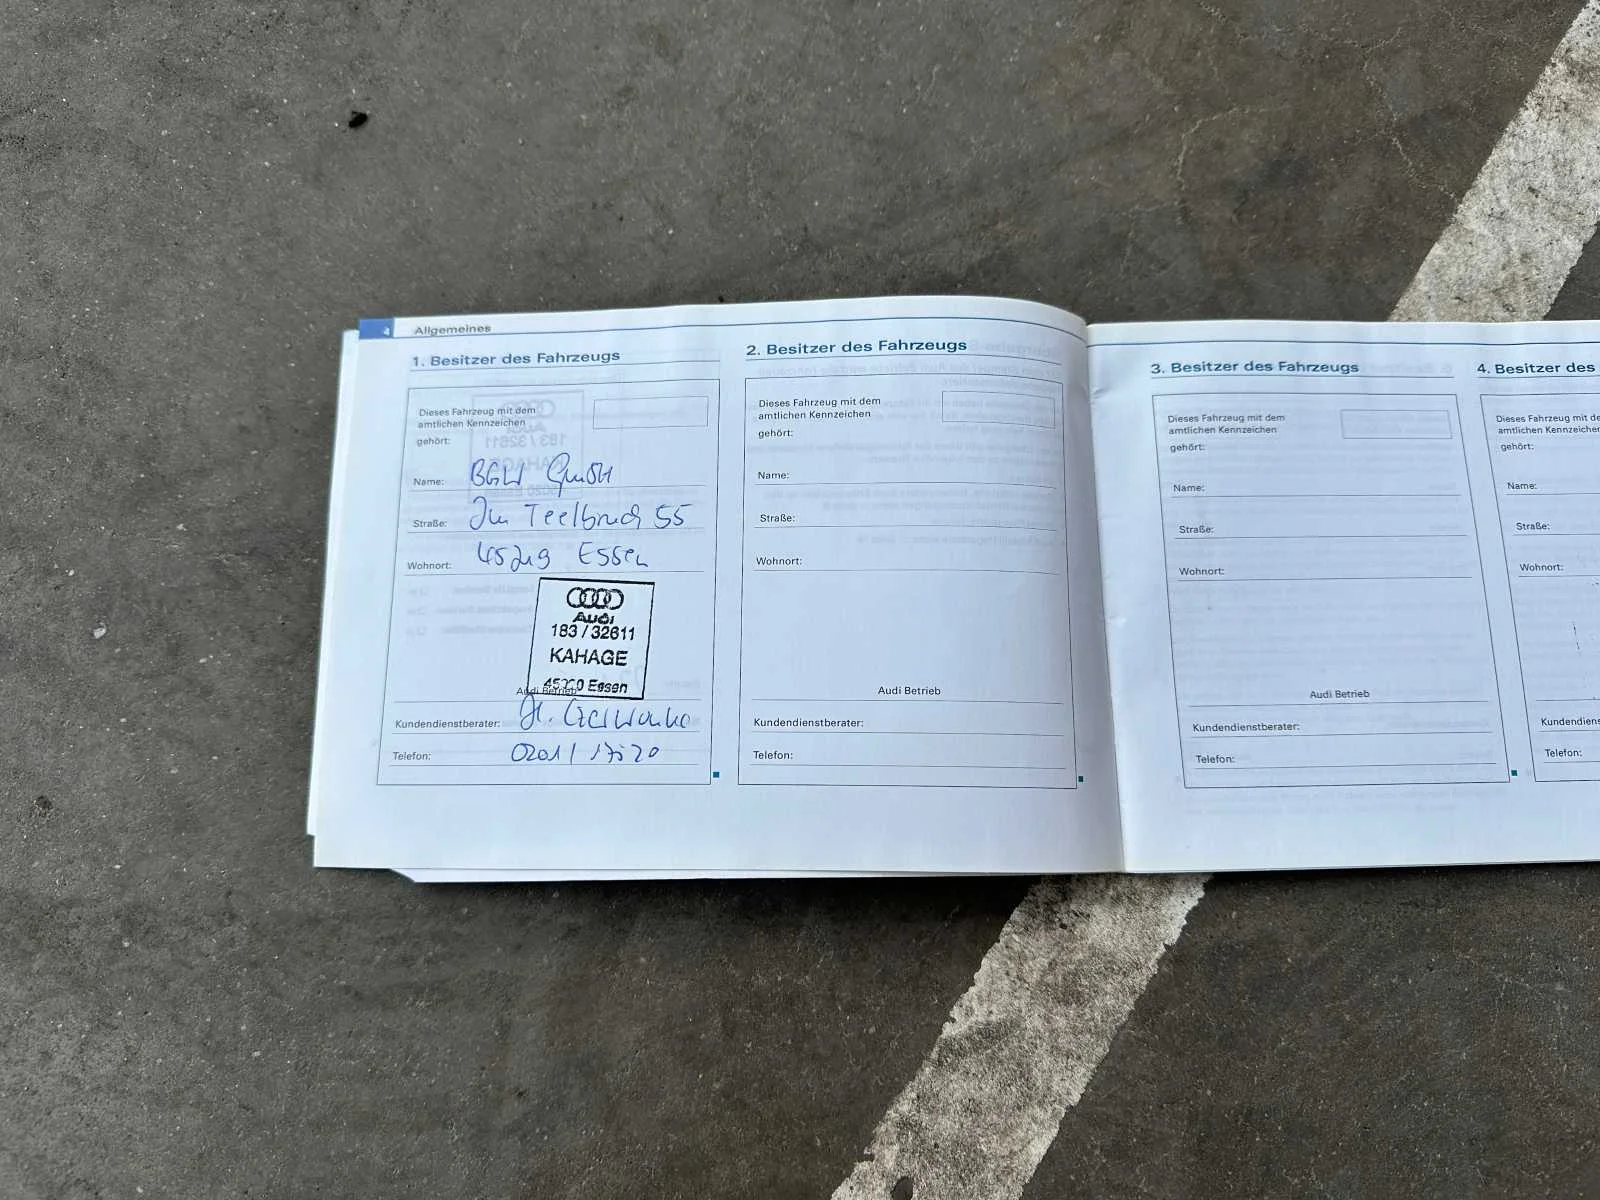 4 Allgemeines
1. Besitzer des Fahrzeugs
Dieses Fahrzeug mit dem
amtlichen Kennzeichen
gehört:
Name: BGW GmbH
Straße: Im Teelbruch 55
Wohnort: 45219 Essen
Audi
183 / 32611
KAHAGE
Essen
Audi Betrieb
Kundendienstberater: H.
Telefon: 0201 /
2. Besitzer des Fahrzeugs
Dieses Fahrzeug mit dem
amtlichen Kennzeichen
gehört:
Name:
Straße:
Wohnort:
Audi Betrieb
Kundendienstberater:
Telefon:
3. Besitzer des Fahrzeugs
Dieses Fahrzeug mit dem
amtlichen Kennzeichen
gehört:
Name:
Straße:
Wohnort:
Audi Betrieb
Kundendienstberater:
Telefon:
4. Besitzer des
Dieses Fahrzeug mit
amtlichen
gehört:
Name:
Straße:
Wohnort:
Telefon: